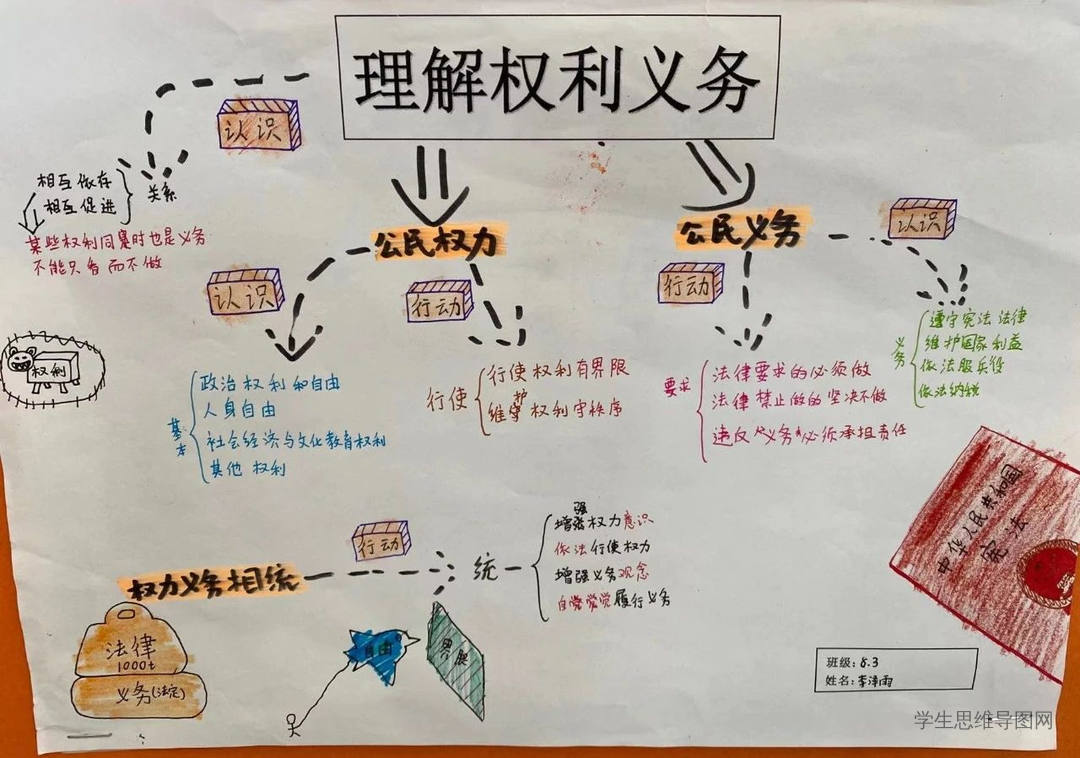 理解权利义务
认识
相互依存
相互促进
关系
某些权利同时也是义务
不能只看而不做
公民权力
公民义务
认识
认识
行动
行动
权利
基本
政治权利和自由
人身自由
社会经济与文化教育权利
其他权利
行使
行使权利有界限
维护权利守秩序
要求
法律要求的必须做
法律禁止做的坚决不做
违反义务必须承担责任
义务
遵守宪法法律
维护国家利益
依法服兵役
依法纳税
中华人民共和国
宪法
行动
权力义务相统一
统一
增强权力意识
依法行使权力
增强义务观念
自觉履行义务
法律
1000t
义务(法定)
自由
界限
班级:8.3
姓名:李泽雨
学生思维导图网